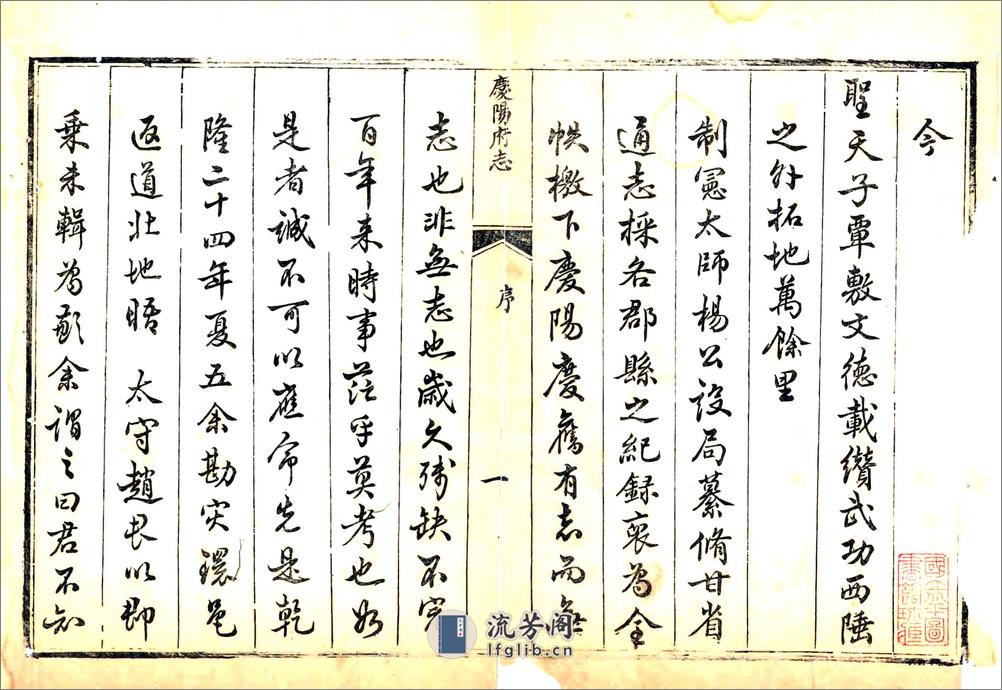 今
聖天子覃敷文德載纘武功西陲
之外拓地萬餘里
制憲太師楊公設局纂脩甘省
通志採各郡縣之紀錄裒為全
帙檄下慶陽慶舊有志而無
慶陽府志
序
一
志也非無志也歲久殘缺不完
百年來時事茫乎莫考也如
是者誠不可以應命先是乾
隆二十四年夏五余勘災環邑
返道壯地晤 太守趙君以郡
乘未輯為歉余謂之曰君不知
流芳阁
lfglib.cn